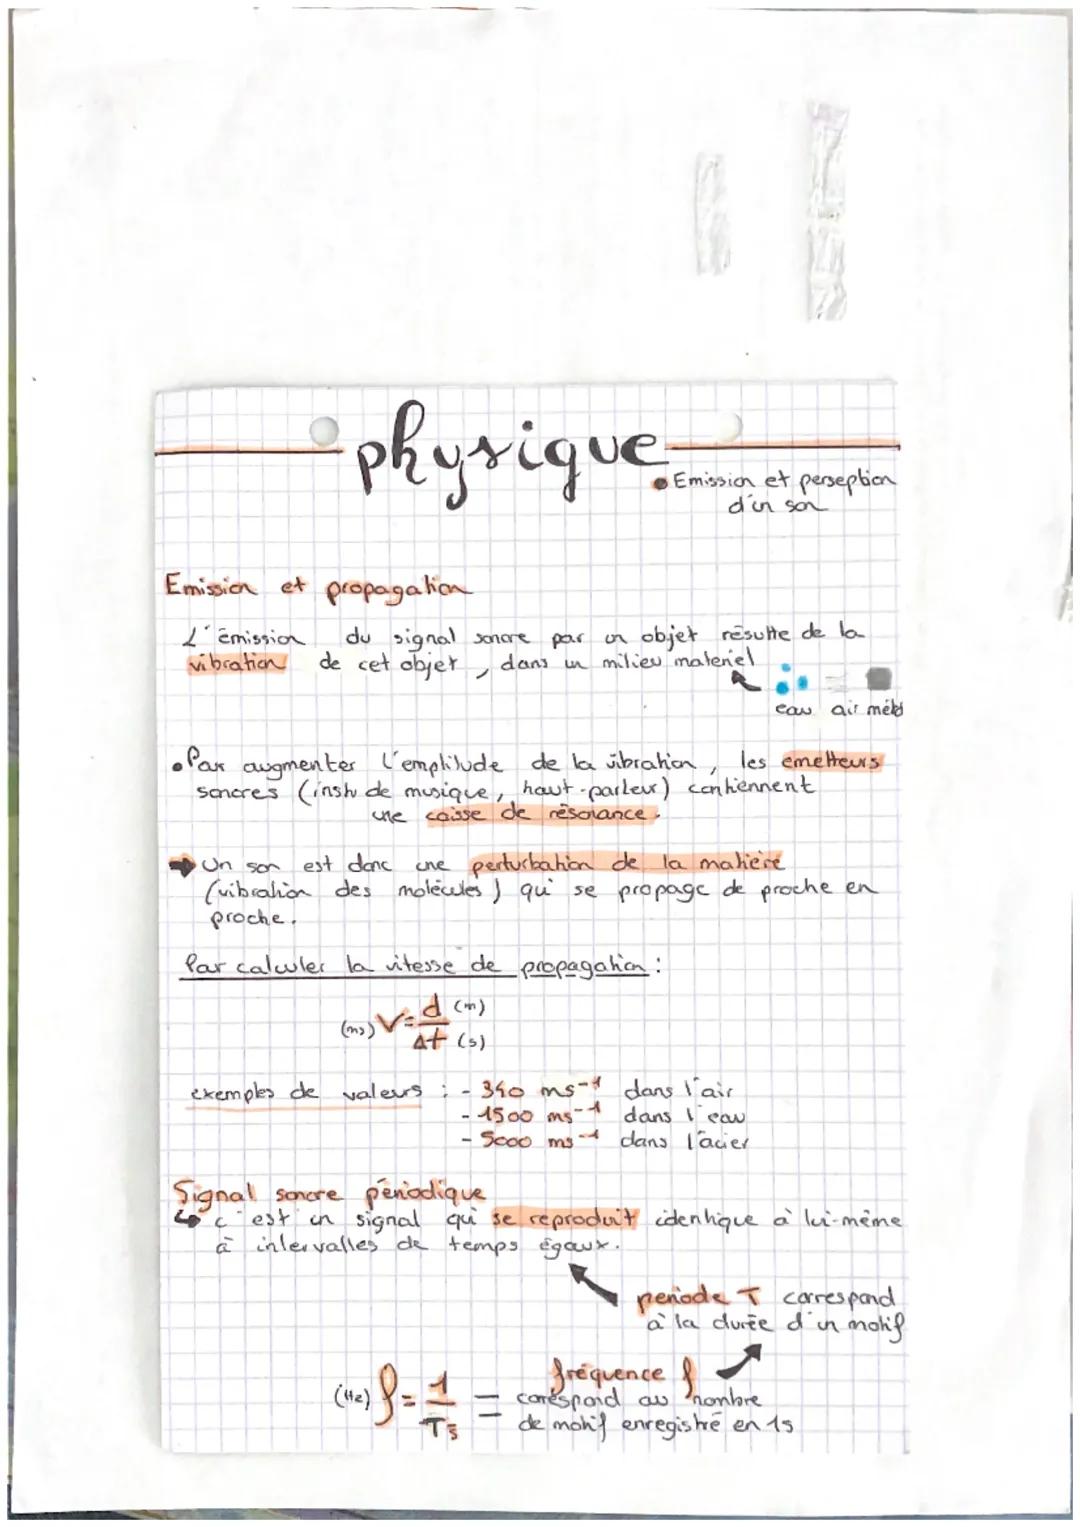 physique
• Emission et perseption
d'un son
Emission et propagation
L'émission du signal sonore par un objet résulte de la
vibration de cet objet, dans un milieu matériel
eau air métal
• Pour augmenter l'emplitude de la vibration, les emetteurs
sonores (inst de musique, haut-parleur) contiennent
une caisse de résonance.
➡ Un son est donc une perturbation de la matière
(vibration des molécules) qui se propage de proche en
proche.
Pour calculer la vitesse de propagation :
(ms) V = d (m)
Δt (s)
exemples de valeurs : - 340 ms⁻¹ dans l'air
- 1500 ms⁻¹ dans l'eau
- 5000 ms⁻¹ dans l'acier
Signal sonore périodique
↳ c'est un signal qui se reproduit identique à lui-même
à intervalles de temps égaux.
periode T correspond
à la durée d'un motif
fréquence f
(Hz) f = 1 = correspond au nombre
T s de motif enregistré en 1s